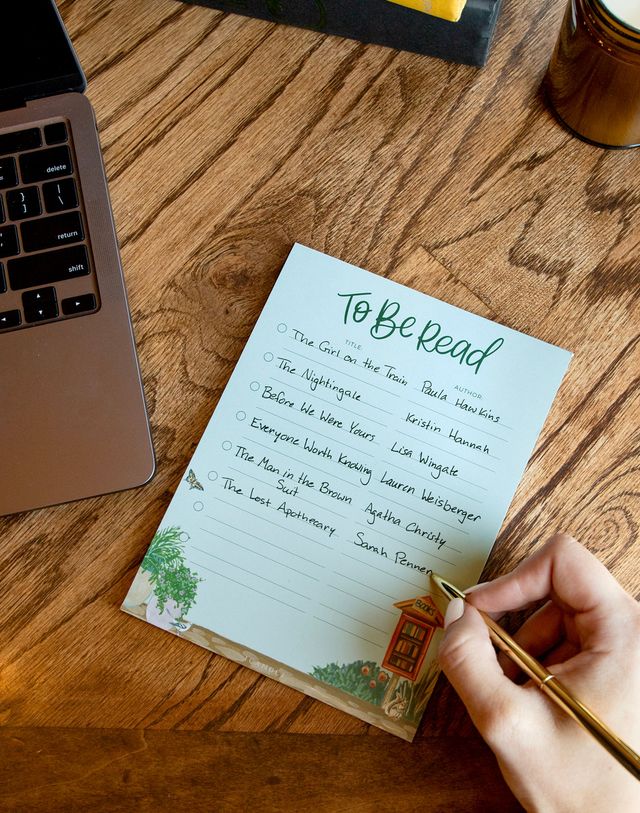 delete
}
]
|
\
return
shift
To Be Read
TITLE: AUTHOR:
The Girl on the Train Paula Hawkins
The Nightingale Kristin Hannah
Before We Were Yours Lisa Wingate
Everyone Worth Knowing Lauren Weisberger
The Man in the Brown Agatha Christy
Suit
The Lost Apothecary Sarah Penner
BOOKS